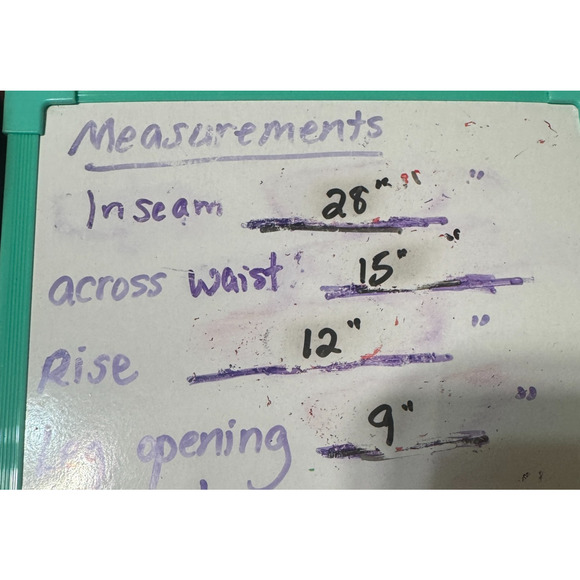 Measurements
Inseam 28" "
across waist 15" "
Rise 12" "
Leg opening 9" "